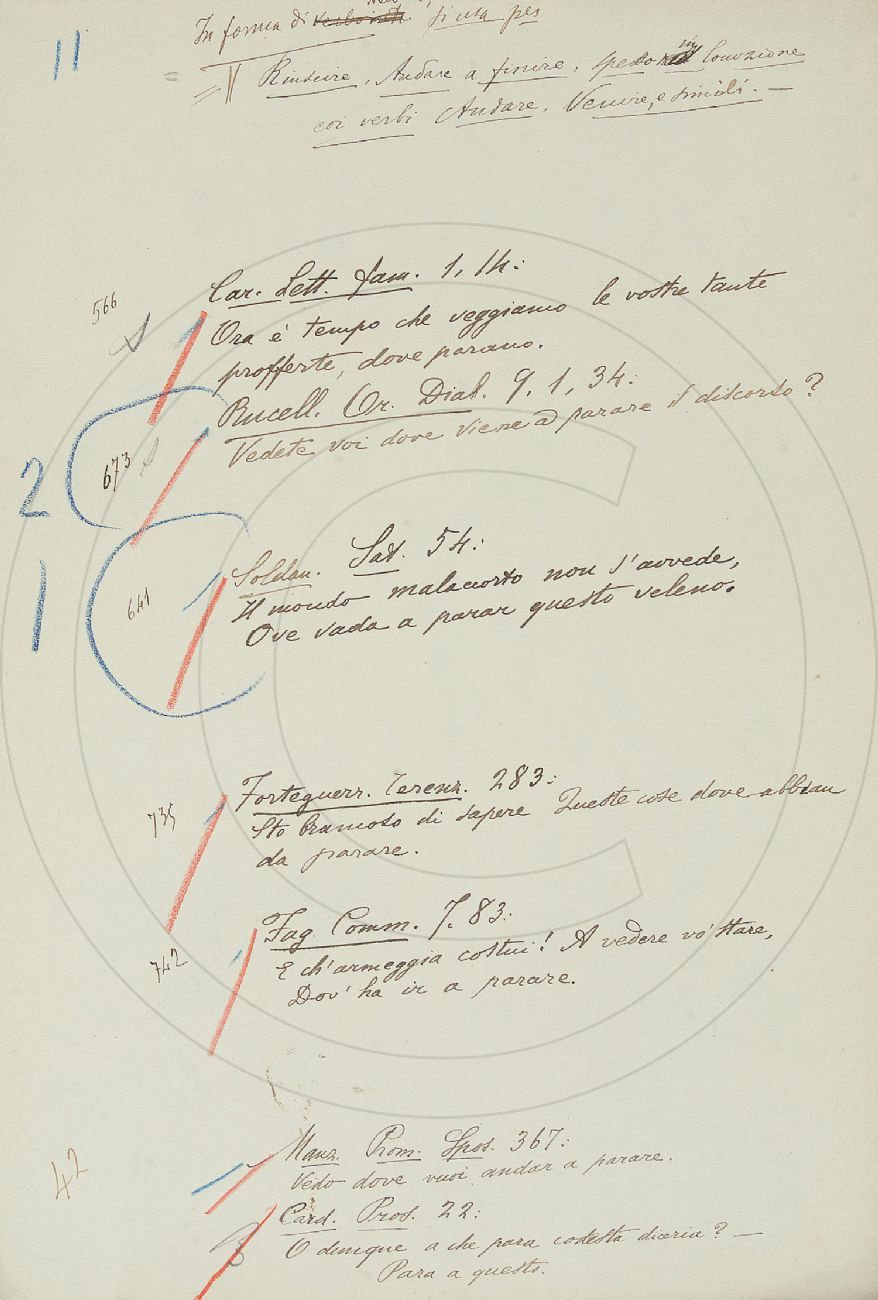 11
In forma di si usa per
= // Riuscire, Andare a finire, spesso in locuzione
coi verbi Andare, Venire, e simili. —
566
Car. Lett. fam. 1, 14:
Ora è tempo che veggiamo le vostre tante
profferte, dove parano.
Rucell. Or. Dial. 9. 1, 34:
673
Vedete voi dove viene a parare il discorso?
2
1
641
Soldan. Sat. 54:
Il mondo malaccorto non s'avvede,
Ove vada a parar questo veleno.
735
Forteguerr. Terenz. 283:
Sto bramoso di sapere Queste cose dove abbian
da parare.
742
Fag. Comm. 7. 83:
E ch'armeggia costui! A vedere vo' stare,
Dov' ha ir a parare.
42
Manz. Prom. Spos. 367:
Vedo dove vuoi andar a parare.
Card. Pros. 22:
O dunque a che para codesta diceria? —
Para a questo.